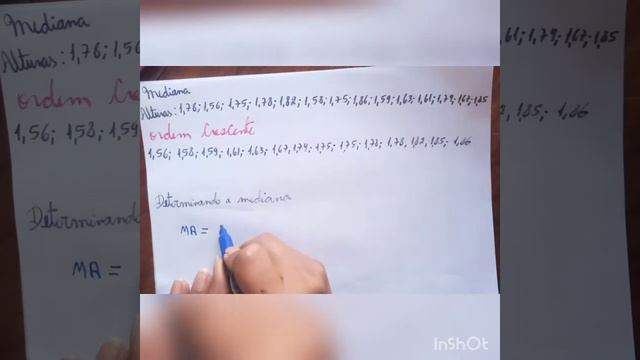 Mediana
Alturas: 1,78; 1,56; 1,75; 1,78; 1,82; 1,58; 1,75; 1,86; 1,59; 1,63; 1,61; 1,79; 1,67; 1,85
ordem Crescente
1,56; 1,58; 1,59; 1,61; 1,63; 1,67, 1,74; 1,75; 1,75; 1,78; 1,78, 1,82, 1,85; 1,86
Determinando a mediana
MA =
InShOt